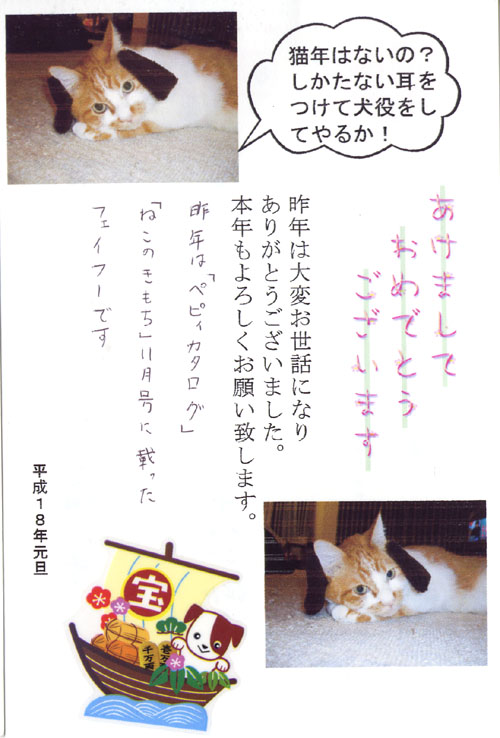 猫年はないの？
しかたない耳を
つけて犬役をし
てやるか！
あけまして
おめでとう
ございます
昨年は大変お世話になり
ありがとうございました。
本年もよろしくお願い致します。
昨年は「ペピィカタログ」
「ねこのきもち」11月号に載った
フェイフーです
平成１８年元旦
宝
千万両